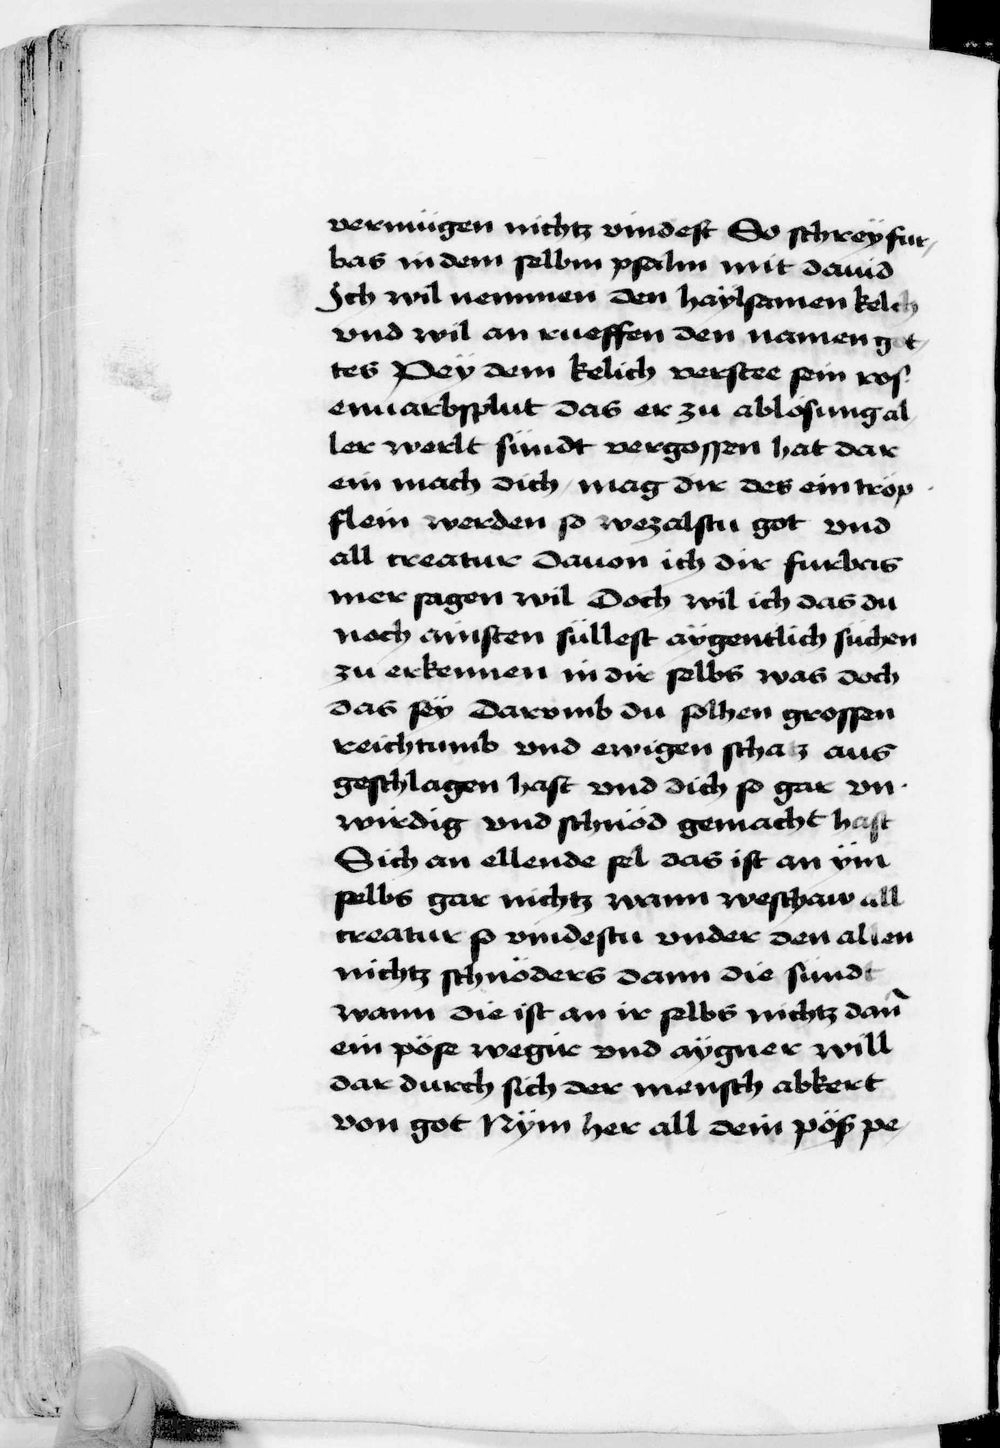 vermügen nichtz vindest So schreÿ fur-
bas in dem selbm psalm mit dauid
Ich wil nemmen den haÿlsamen kelch
vnd wil an rueffen den namen got-
tes Peÿ dem kelich verstee sein ros-
enuarbsplut das er zu ablösung al-
ler werlt sündt vergossen hat dar
ein mach dich / mag dir des ein tröp-
flein werden so wezalstu got vnd
all creatur Dauon ich dir furbas
mer sagen wil Doch wil ich das du
noch ainsten süllest aÿgentlich suchen
zu erkennen in dir selbs was doch
das seÿ Darvmb du solhen grossen
reichtumb vnd ewigen schatz aus
geschlagen hast vnd dich so gar vn-
wirdig vnd schnöd gemacht hast
Sich an ellende sel das ist an ÿm
selbs gar nichtz wann weschaw all
creatur so vindestu vnder den allen
nichtz schnöders dann die sündt
wann die ist an ir selbs nichtz dañ
ein pöse wegir vnd aÿgner will
dar durch sich der mensch abkert
von got Nÿm her all dein pöß pe-